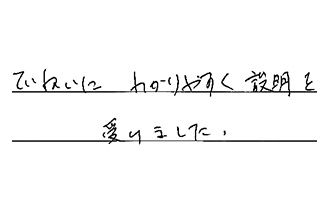 ていねいに わかりやすく 説明を
受けました.